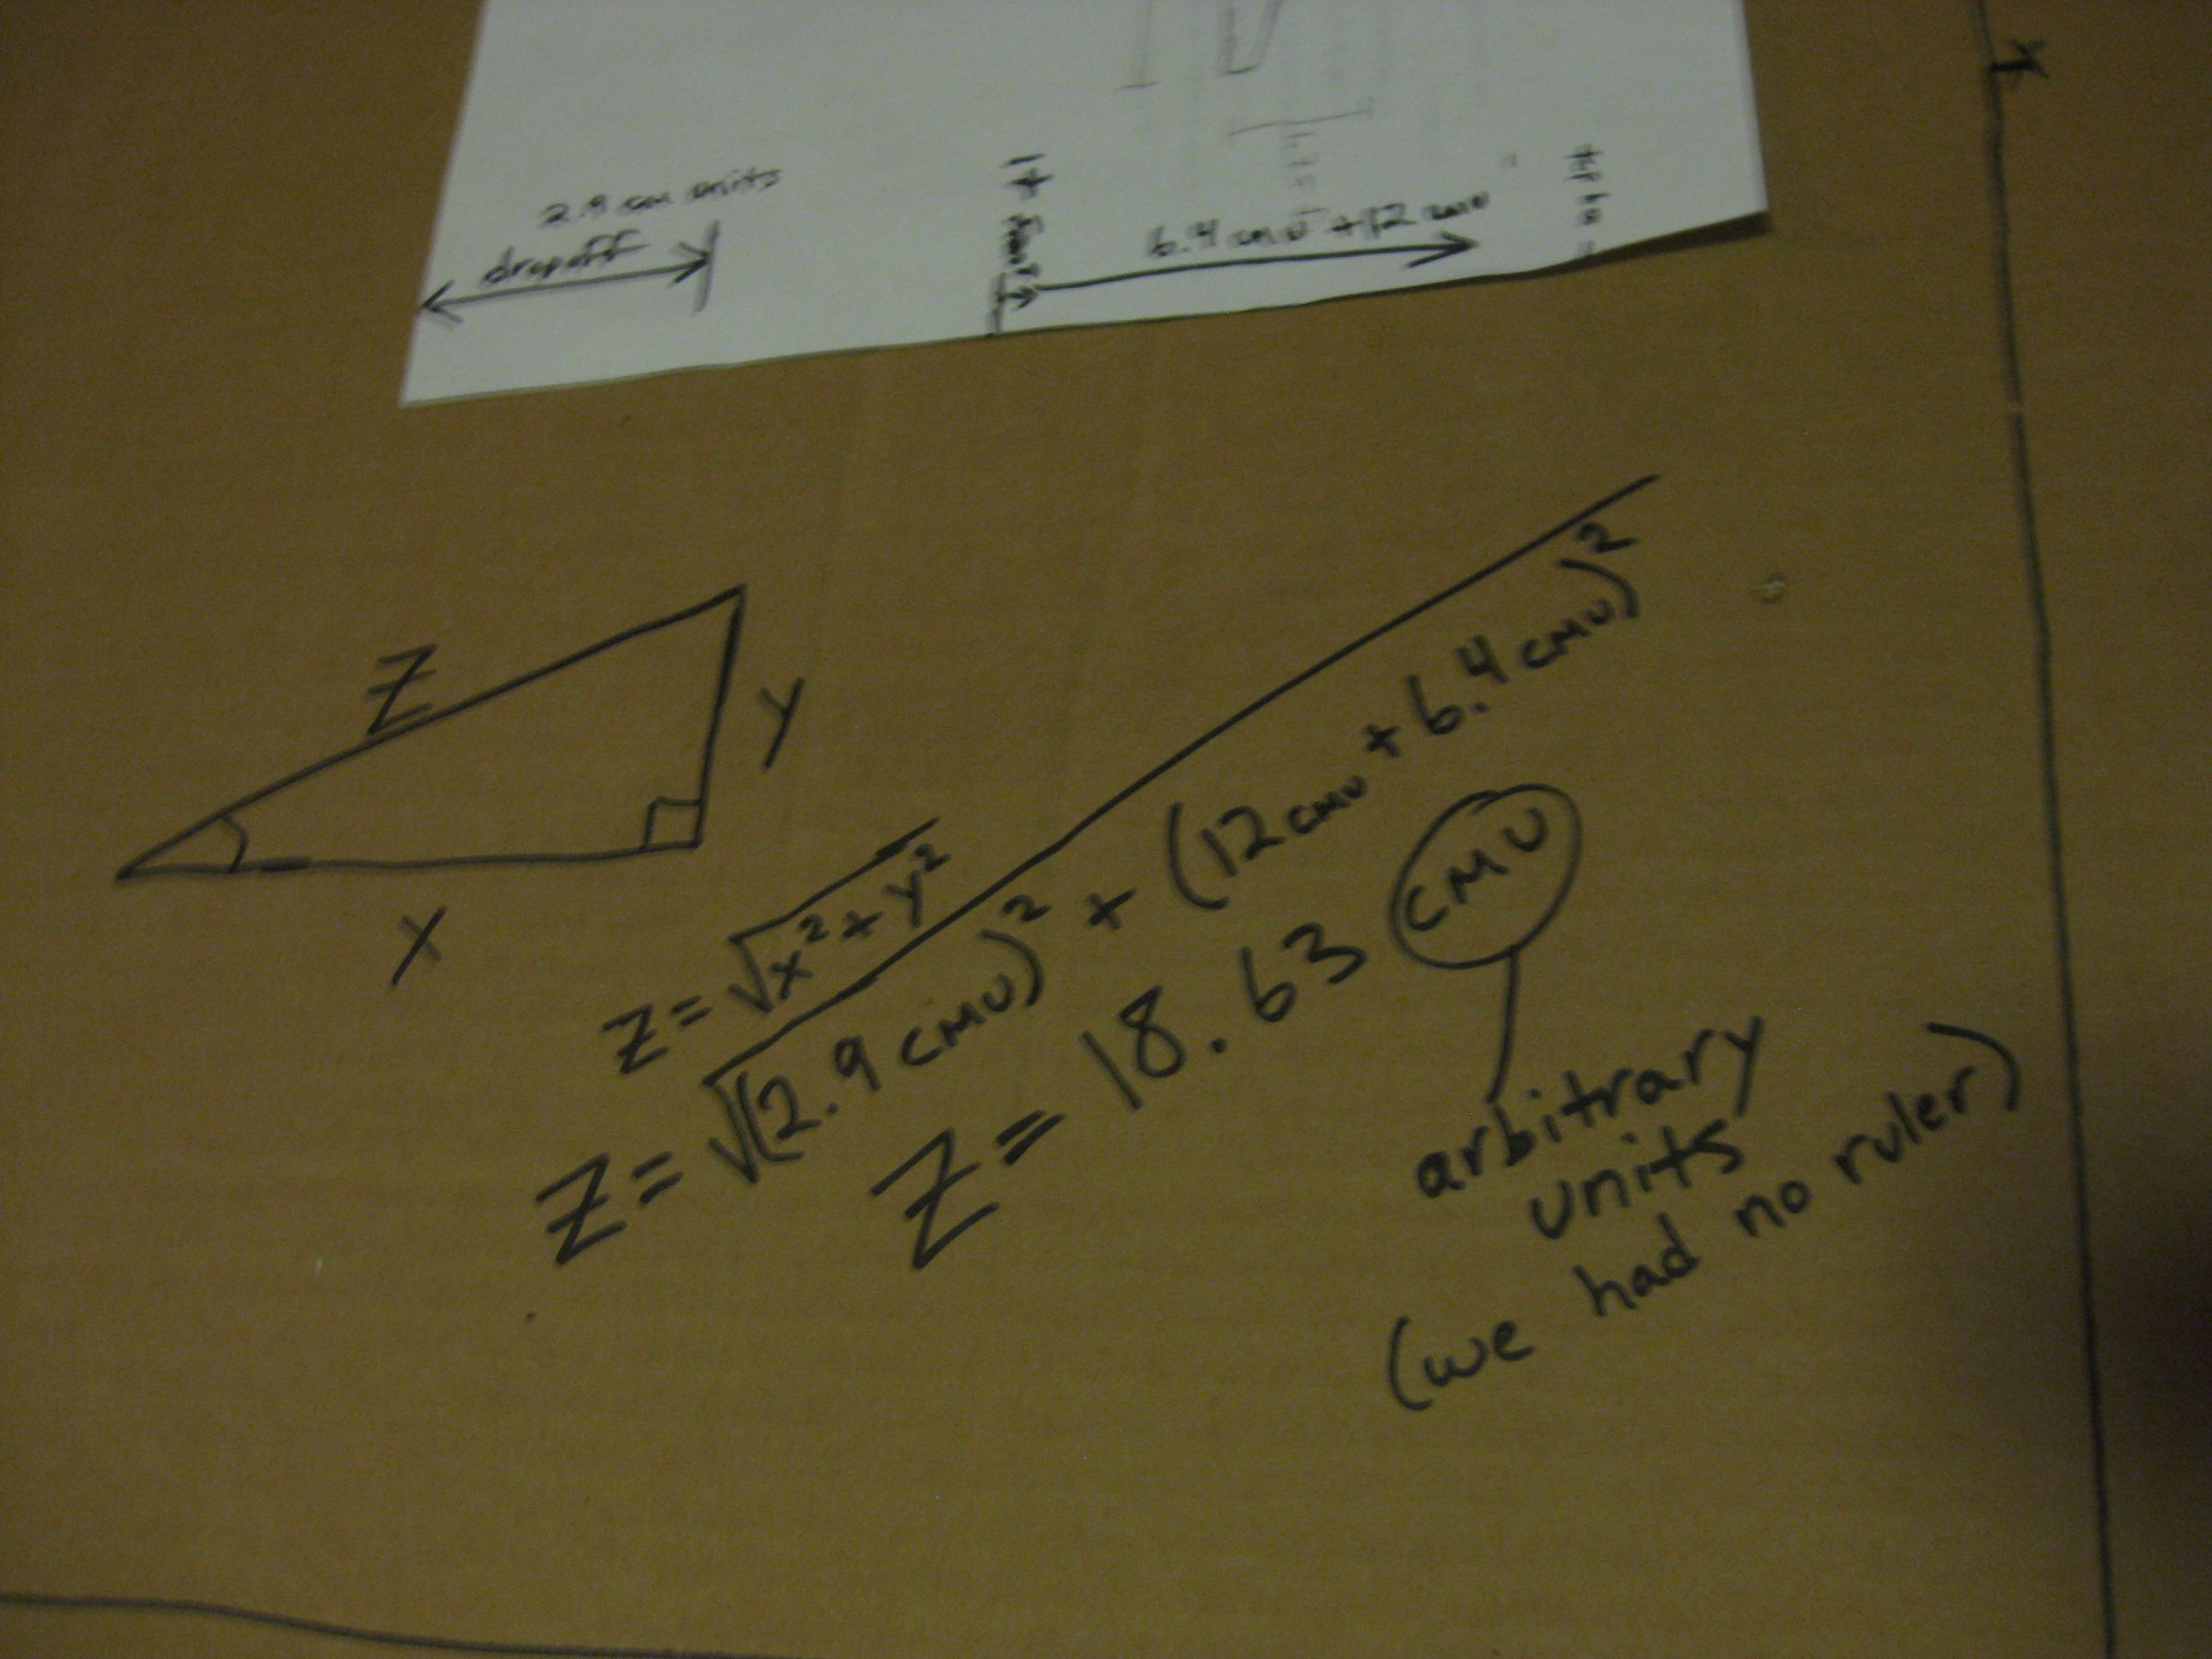 2.9 cm units
dropoff
6.4 cmu + 12 cmu
Z
y
x
Z = √x² + y²
Z = √(2.9 CMU)² + (12 CMU + 6.4 CMU)²
Z = 18.63 CMU
arbitrary
units
(we had no ruler)
x